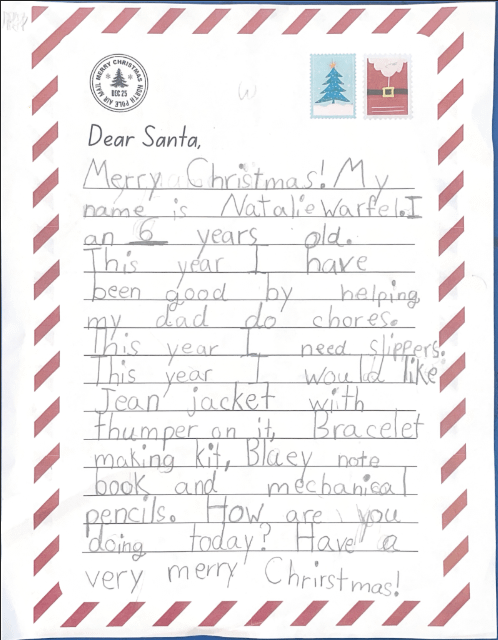 MERRY CHRISTMAS NORTH POLE AIR MAIL
DEC 25
Dear Santa,
Merry Christmas! My
name is Natalie Warfel. I
an 6 years old.
This year I have
been good by helping
my dad do chores.
This year I need slippers.
This year I would like
Jean jacket with
thumper on it, Bracelet
making kit, Bluey note
book and mechanical
pencils. How are you
doing today? Have a
very merry Chrirstmas!